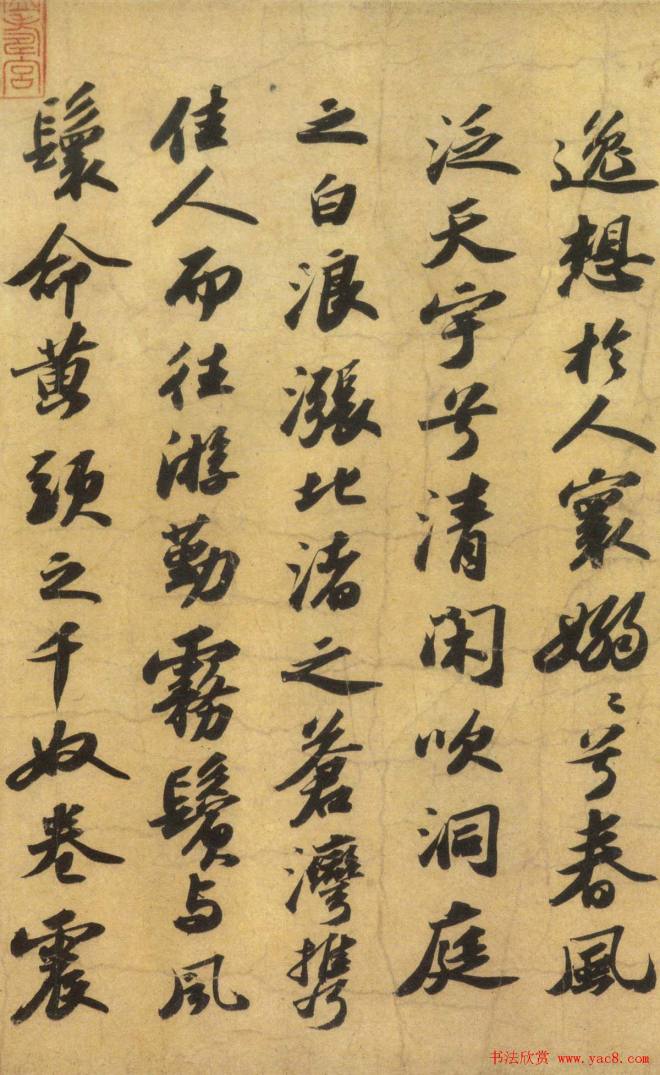 逸想於人寰嫋〻兮春風
泛天宇兮清閑吹洞庭
之白浪漲北渚之蒼灣携
佳人而往游勤霧鬢与風
鬟命黄頭之千奴卷震
书法欣赏 www.yac8.com